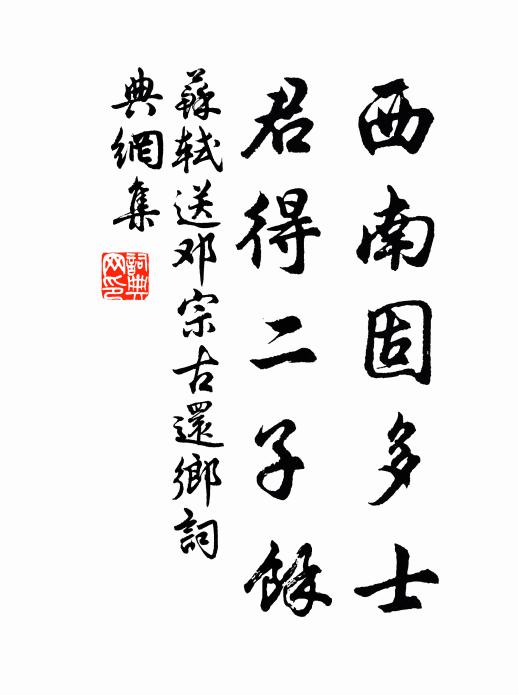 西南固多士
君得二子餘
蘇軾送邓宗古還鄉詞
典網集
詞典
网印